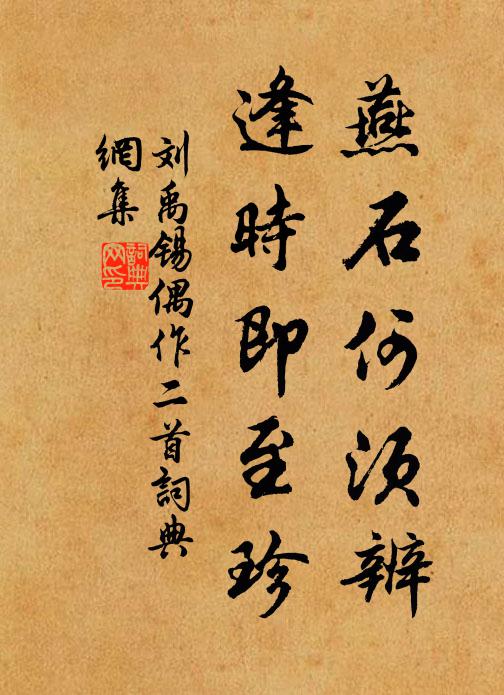 燕石何須辨
逢時即至珍
刘禹锡偶作二首詞典
網集
詞典
网印